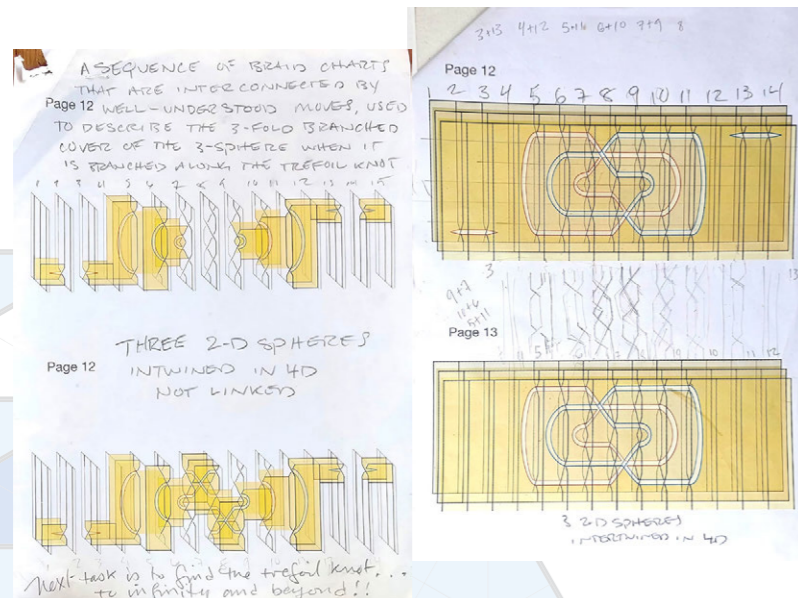 A SEQUENCE OF BRAID CHARTS
THAT ARE INTERCONNECTED BY
Page 12 WELL-UNDERSTOOD MOVES, USED
TO DESCRIBE THE 3-FOLD BRANCHED
COVER OF THE 3-SPHERE WHEN IT
IS BRANCHED ALONG THE TREFOIL KNOT
THREE 2-D SPHERES
Page 12 INTWINED IN 4D
NOT LINKED
Next task is to find the trefoil knot...
to infinity and beyond!!
3+13 4+12 5+11 6+10 7+9 8
Page 12
1 2 3 4 5 6 7 8 9 10 11 12 13 14
3 13
9+7
10+6
5+11
Page 13
3 2D SPHERES
INTERTWINED IN 4D